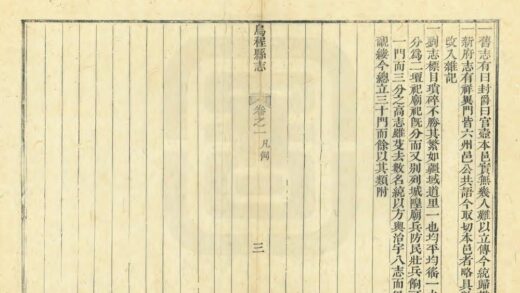 一舊志有曰封爵曰官壺本邑實無幾人難以立傳今統歸
新府志有祥異門皆六州邑公共語今取切本邑者略具
改入雜記
一劉志標目瑣碎不勝其繁如疆域道里一也均平均徭一也
分爲二壇祀廟祀旣分而又別列城隍廟兵防民壯兵餉
一門而三分之高志雖芟去數名統以方輿治宇八志而
議縷今總立三十門而餘以其類附
烏程縣志
卷之一
凡例
三